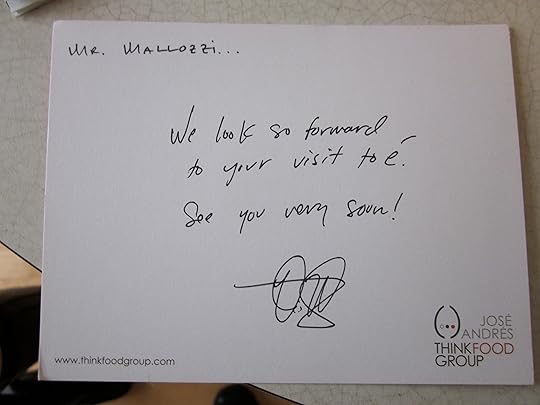 MR. MALLOZZI...
We look so forward
to your visit to é.
See you very soon!
JOSÉ
ANDRÉS
THINKFOOD
GROUP
www.thinkfoodgroup.com